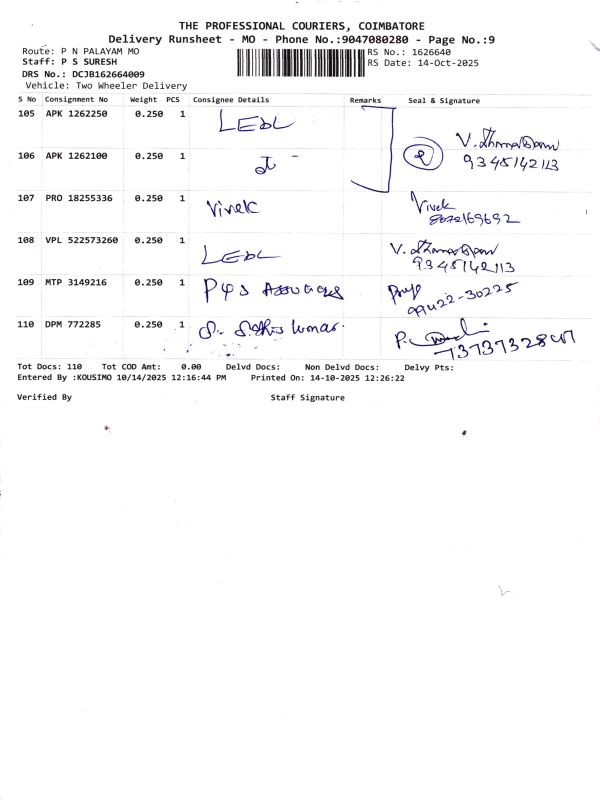 THE PROFESSIONAL COURIERS, COIMBATORE
Delivery Runsheet - MO - Phone No.:9047080280 - Page No.:9
Route: P N PALAYAM MO RS No.: 1626640
Staff: P S SURESH RS Date: 14-Oct-2025
DRS No.: DCJB162664009
Vehicle: Two Wheeler Delivery
S No Consignment No Weight PCS Consignee Details Remarks Seal & Signature
105 APK 1262250 0.250 1
106 APK 1262100 0.250 1 2 9345142113
107 PRO 18255336 0.250 1 Vivek Vivek
108 VPL 522573260 0.250 1 9345142113
109 MTP 3149216 0.250 1 99422-30225
110 DPM 772285 0.250 1
Tot Docs: 110 Tot COD Amt: 0.00 Delvd Docs: Non Delvd Docs: Delvy Pts:
Entered By :KOUSIMO 10/14/2025 12:16:44 PM Printed On: 14-10-2025 12:26:22
Verified By Staff Signature